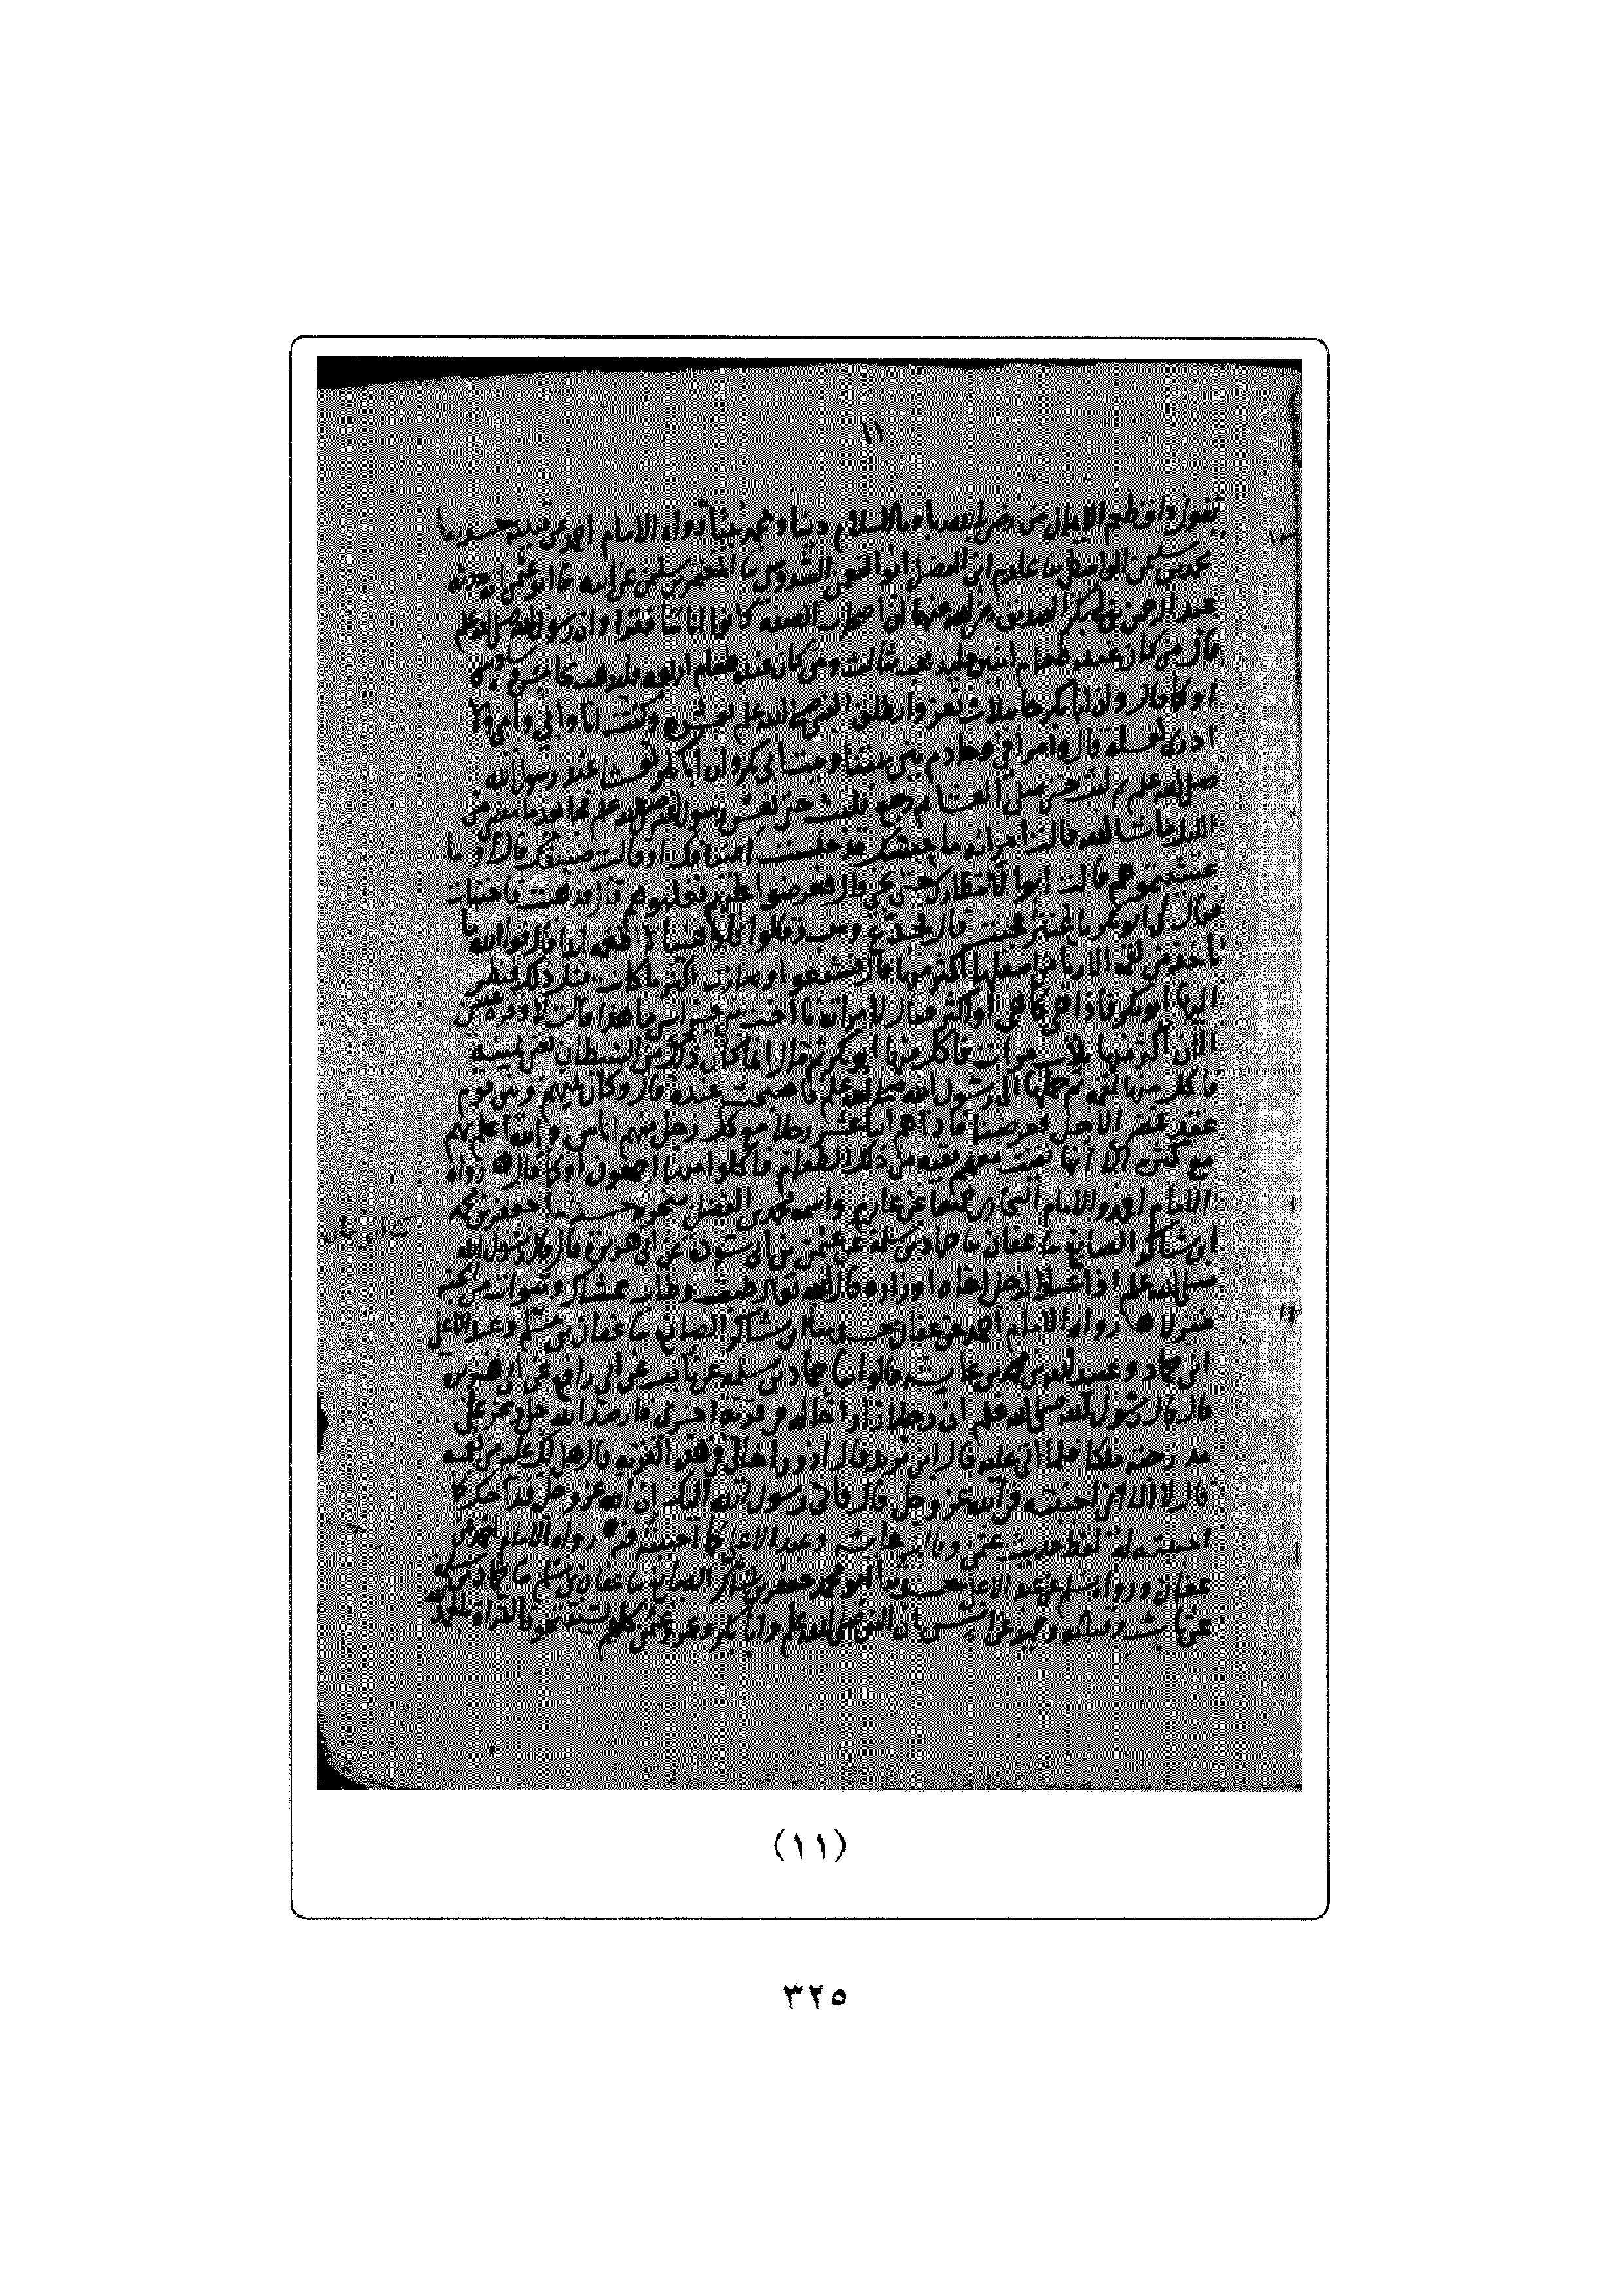 ١١
يقول ذاق طعم الإيمان من رضي بالله ربا وبالاسلام دينا وبمحمد نبيا رواه الامام احمد عن قتيبة حدثنا
محمد بن سليمن الواسطي ثنا عارم ابن الفضل ابو النعمن السدوسي ثنا المعتمر بن سليمن عن ابيه ثنا ابو عثمن انه حدثه
عبد الرحمن بن ابي بكر الصديق رضي الله عنهما ان اصحاب الصفة كانوا اناسا فقرا وان رسول الله صلى الله علم
قال من كان عنده طعام اثنين فليذهب بثالث ومن كان عنده طعام اربعه فليذهب بخامس سادس
او كما قال وان ابا بكر جا بثلاث نفر وانطلق النبي صلى الله علم بعشره وكنت انا وابي وامي ولا
ادري لعله قال وامراتي وخادم بين بيتنا وبيت ابي بكر وان ابا بكر تعشا عند رسول الله
صلى الله علم ثم لبث حتى صلى العشا ثم رجع فلبث حتى نعس رسول الله صلى الله علم فجا بعد ما مضى من
الليل ما شا الله قالت امراته ما حبسك قد حبست اضيافك او قالت ضيفك قال او ما
عشيتموهم قالت ابوا لانتظارك حتى تجي قال فعرضوا عليهم فغلبوهم قال فذهبت فاختبات
فقال لي ابو بكر يا غنثر فجيت قال فجدع وسب وقالوا كلوا هنيا لا اطعمه ابدا قال فوالله ما
ناخذ من لقمه الا ربا من اسفلها اكثر منها قال فشبعوا وصارت اكثر ما كانت قبل ذلك فنظر
اليها ابو بكر فاذا هي كما هي او اكثر فقال لامراته يا اخت بني فراس ما هذا قالت لا وقرة عيني
الان اكثر منها بثلاث مرات فاكل منها ابو بكر ثم قال انما كان ذلك من الشيطان يعني يمينه
فاكل منها لقمه ثم حملها الى رسول الله صلى الله علم فاصبحت عنده قال وكان بينهم وبين قوم
عقد فمضى الاجل فعرضنا فاذا هم اثنا عشر رجلا مع كل رجل منهم اناس والله اعلم بهم
مع كثرة الا انها بقيت معهم بقيه من ذلك الطعام فاكلوا منها اجمعون او كما قال رواه
الامام احمد والامام البخاري جميعا عن عارم واسمه محمد بن الفضل بنحوه حدثنا جعفر بن محمد
ابن شاكر الصايغ ثنا عفان ثنا حماد بن سلمة عن عثمن بن ابي سودة عن ابي هريرة قال قال رسول الله
صلى الله علم اذا عاد الرجل اخاه او زاره قال الله تعالى طبت وطاب ممشاك وتبوات من الجنه
منزلا رواه الامام احمد عن عفان حدثنا ابن شاكر الصايغ ثنا عفان بن مسلم وعبد الاعلى
ابن حماد وعبيد الله بن محمد بن عايشه قالوا ثنا حماد بن سلمه عن ثابت عن ابي رافع عن ابي هريره
قال قال رسول الله صلى الله علم ان رجلا زار اخا له في قرية اخرى فارصد الله جل وعز على
مدرجته ملكا فلما اتى عليه قال اين تريد قال ازور اخا لي في هذه القريه قال هل لك عليه من نعمه
قال لا الا اني احببته في الله عز وجل قال فاني رسول الله اليك ان الله عز وجل قد احبك كما
احببته له لفظ حديث عفان وقال ابن عايشه وعبد الاعلى كما احببته فيه رواه الامام احمد عن
عفان ورواه مسلم عن عبد الاعلى حدثنا ابو محمد جعفر بن شاكر الصايغ ثنا عفان بن مسلم ثنا حماد بن سلمه
عن ثابت وقتاده وحميد عن انس ان النبي صلى الله علم وابا بكر وعمر وعثمن كلهم يستفتحون القراة بالحمد لله
(١١)
٣٢٥